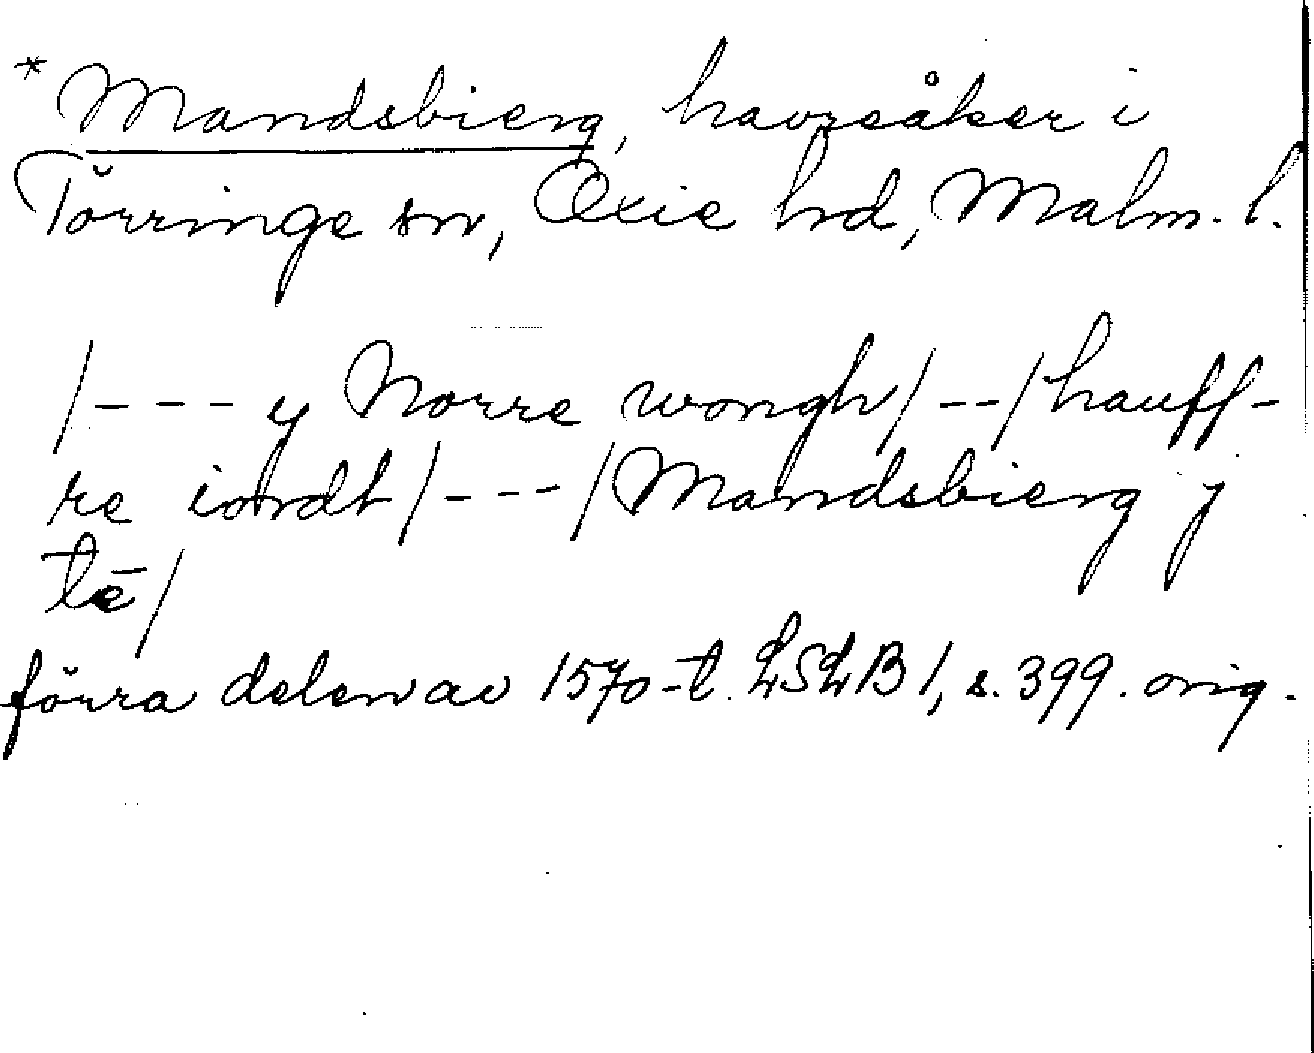 * Mandsbierg, havreåker i
Törringe sn, Oxie hd, Malm. l.
/--- y Norre wongh/--/hauff-
re iordt/---/Mandsbierg j
tē/
förra delen av 1570-t. LSLB 1, s. 399. orig.